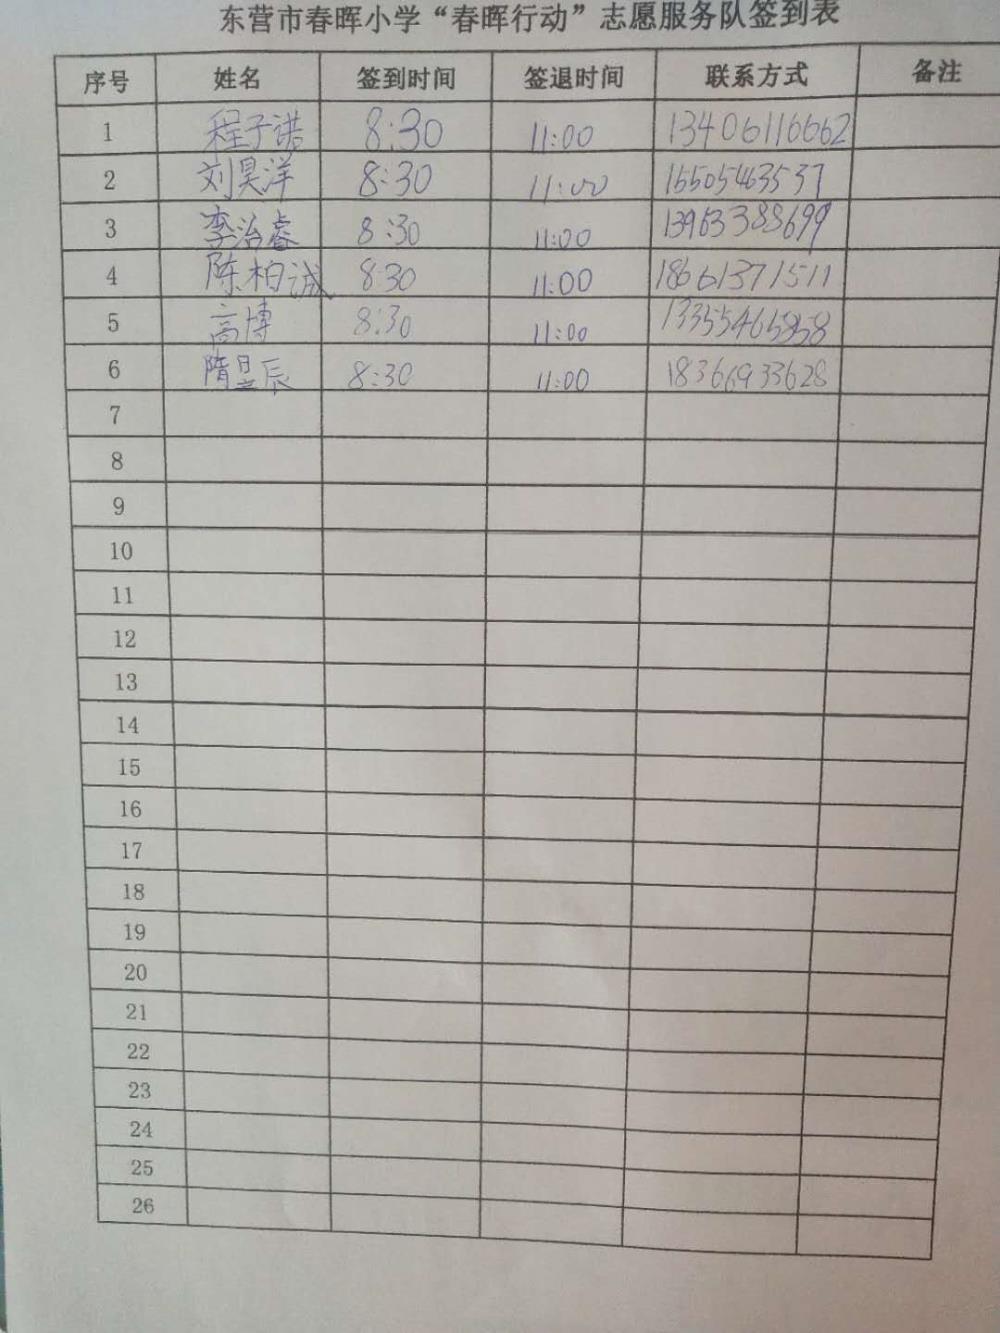 东营市春晖小学“春晖行动”志愿服务队签到表
序号 姓名 签到时间 签退时间 联系方式 备注
1 程子诺 8:30 11:00 13406116662
2 刘昊洋 8:30 11:00 15505463537
3 李治睿 8:30 11:00 13963388699
4 陈柏诚 8:30 11:00 18661371511
5 高博 8:30 11:00 13355465858
6 隋昱辰 8:30 11:00 18366933628
7
8
9
10
11
12
13
14
15
16
17
18
19
20
21
22
23
24
25
26